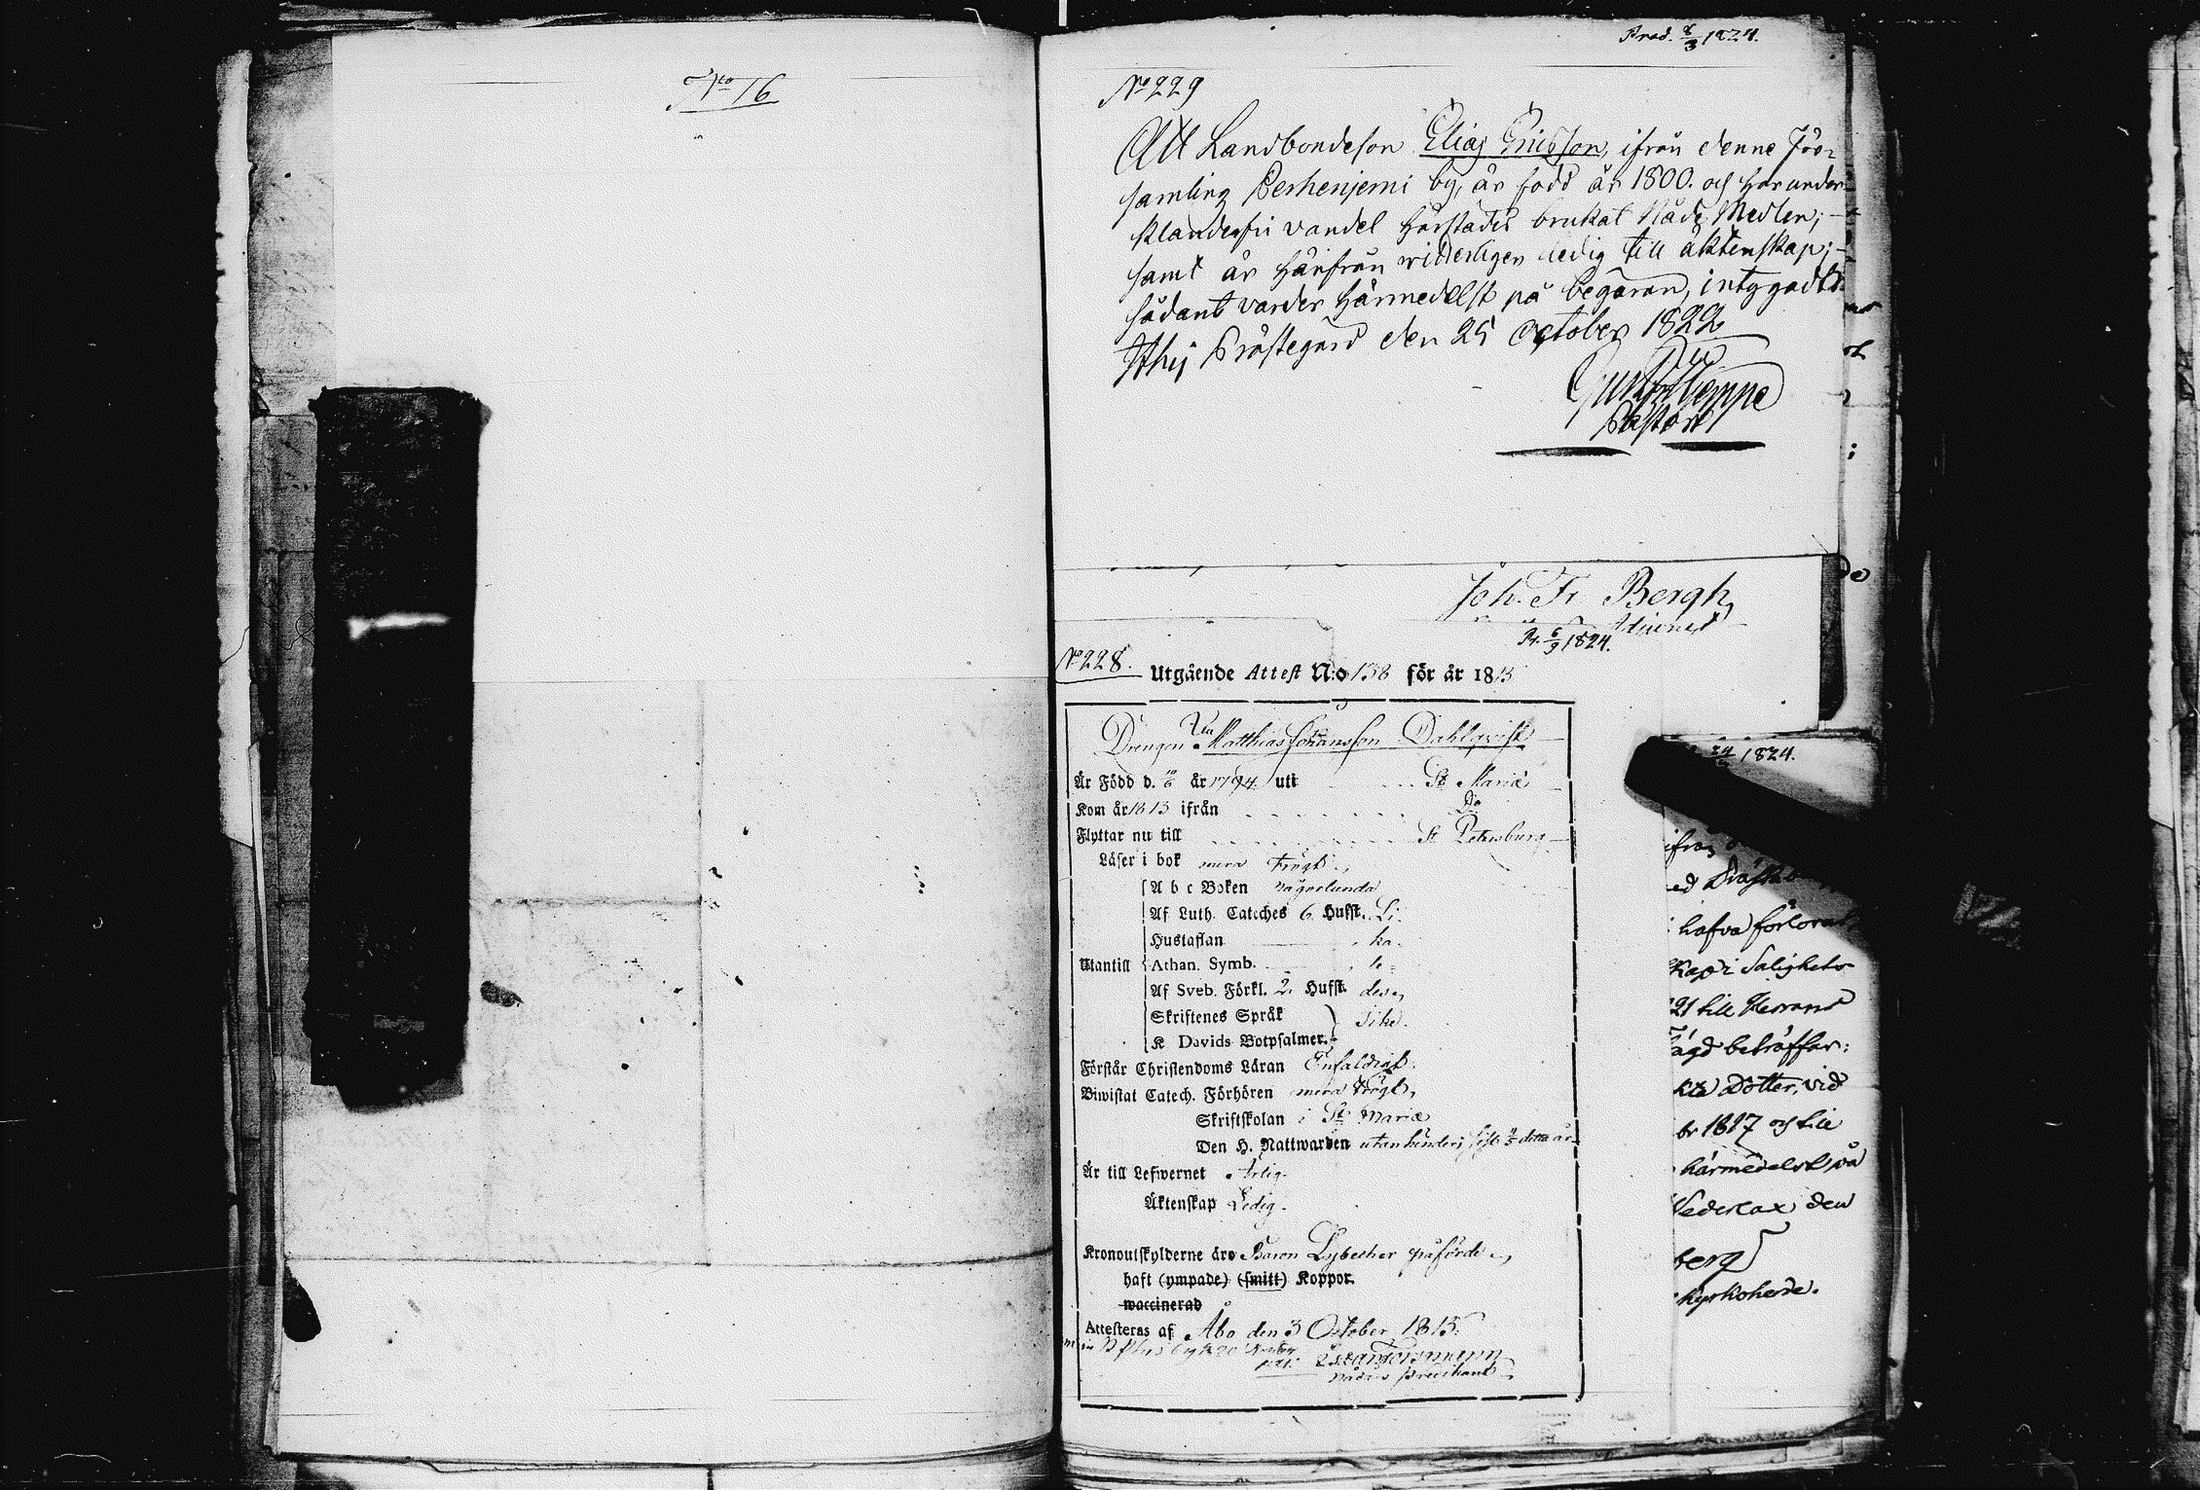 No 16
Prod. 8/3 1824.
No 229
Att Landbondeson Elias Ericsson, ifrån denne För=
samling Perhenjemi by, är född år 1800. och har under
klanderfri vandel härstädes brukat Nåde Medlen;
samt är härifrån witterligen ledig till äktenskap;
sådant varder härmedelst på begäran, intygadt.
Ithis Prästegård den 25 October 1822
Pastor
de
Joh. Fr. Bergh
Pr. 6/9 1824.
No 228.
Utgående Attest N:o 138 för år 1815
Drengen Matthias Johansson Dahlqvist
Är Född d. 10/6 år 1794. uti St Mariæ
Kom år 1813 ifrån Do
Flyttar nu till St Petersburg
Läser i bok mera trögt
A b c Boken någorlunda
Af Luth. Cateches 6 Hufst. Li
Hustaflan ka
Utantill Athan. Symb. le
Af Sveb. Förkl. 2. Hufst. des
Skriftenes Språk
K Davids Botpsalmer.
Förstår Christendoms Läran Enfaldigt.
Biwistat Catech. Förhören mera trögt
Skriftskolan i St Mariæ
Den H. Nattwarden utan hinder sist detta år
Är till Lefwernet Ärlig.
Äktenskap Ledig.
Kronoutskylderne äro Baron Lybecker påförde
haft (ympade) (smitt) Koppor.
waccinerad
Attesteras af Åbo den 3 October 1815.
24 1824.
ifrån
hafva förlorat
kap i Salighets
21 till Herrans
ägd beträffar:
Dotter, vid
br 1817 och till
härmedelst på
Vederlax den
berg
Kyrkoherde.